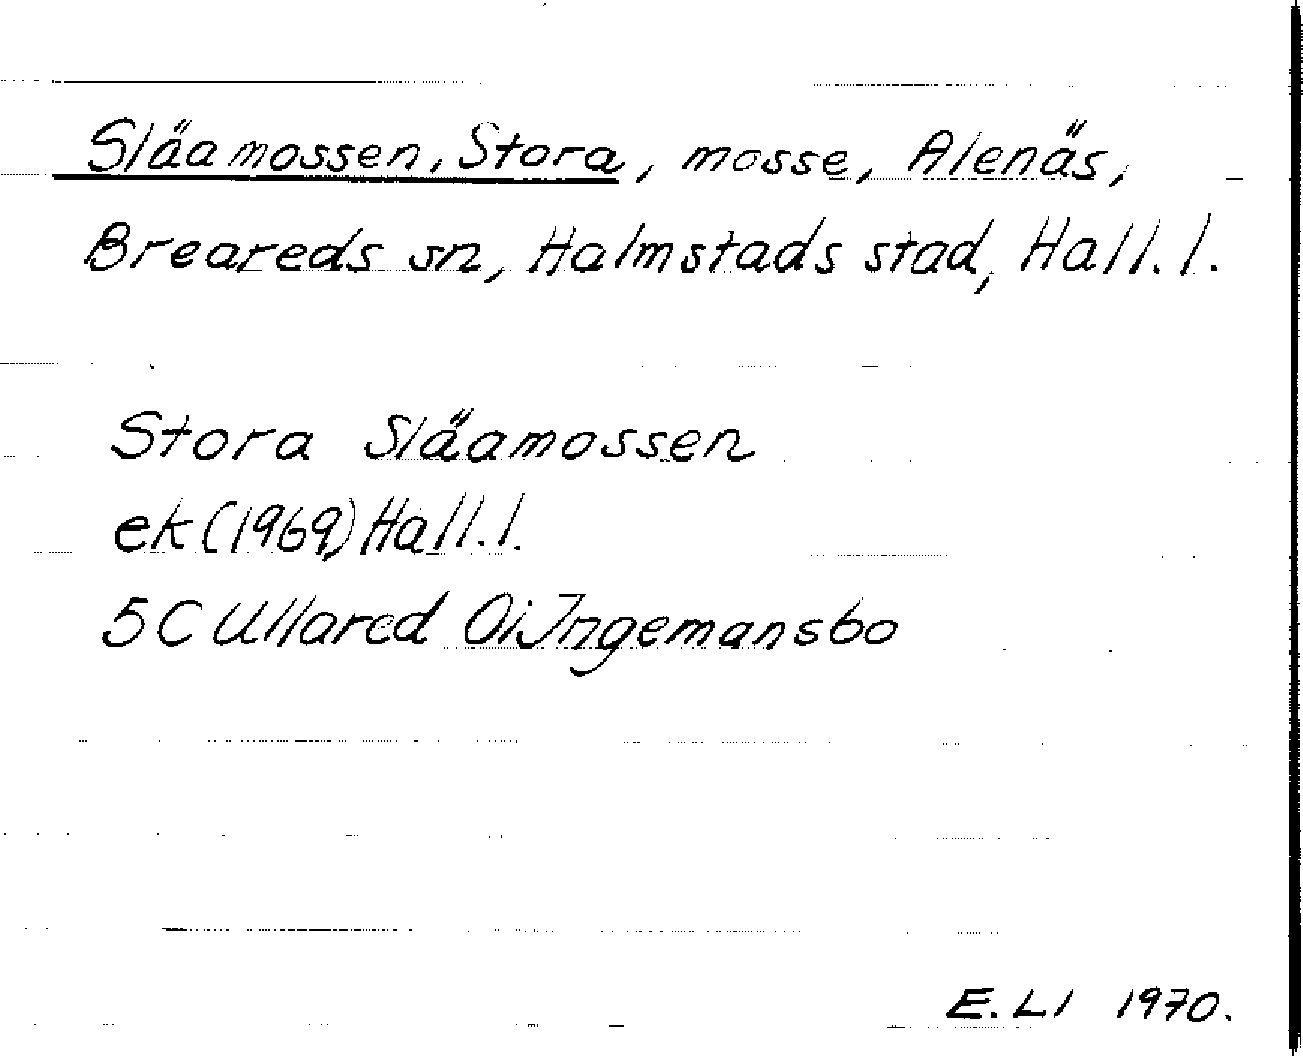 Släamossen, Stora, mosse, Alenäs,
Breareds sn, Halmstads stad, Hall. l.
Stora Släamossen
ek (1969) Hall. l.
5C Ullared 0i Ingemansbo
E. LI 1970.